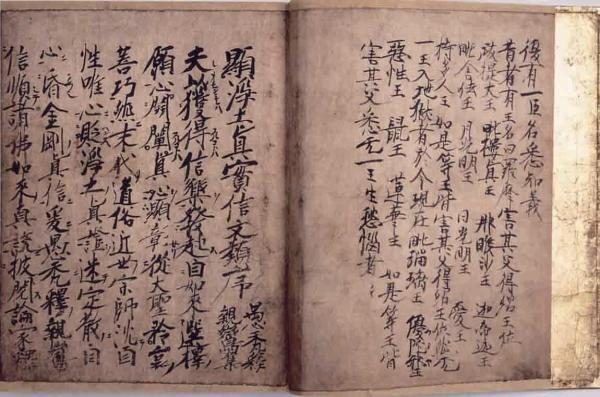 後有一臣名悉知義
昔者有王名曰羅摩害其父得紹王位
跋提大王 毗樓真王 那睺沙王 迦帝迦王
毗舍佉王 月光明王 日光明王 愛王
持多人王 如是等王害其父得紹王位然无
一王入地獄者於今現在毗瑠璃王 優陀邪王
惡性王 鼠王 蓮華王 如是等王皆
害其父悉无一王生愁惱者
顯淨土真實信文類序
愚禿釋
親鸞集
夫以獲得信樂發起自如來選擇
願心開闡真心顯彰從大聖矜哀
善巧然末代道俗近世宗師沈自
性唯心貶淨土真證迷定散自
心昏金剛真信爰愚禿釋親鸞
信順諸佛如來真說披閱論家釋